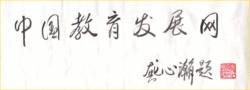 中国教育发展网
龚心瀚题